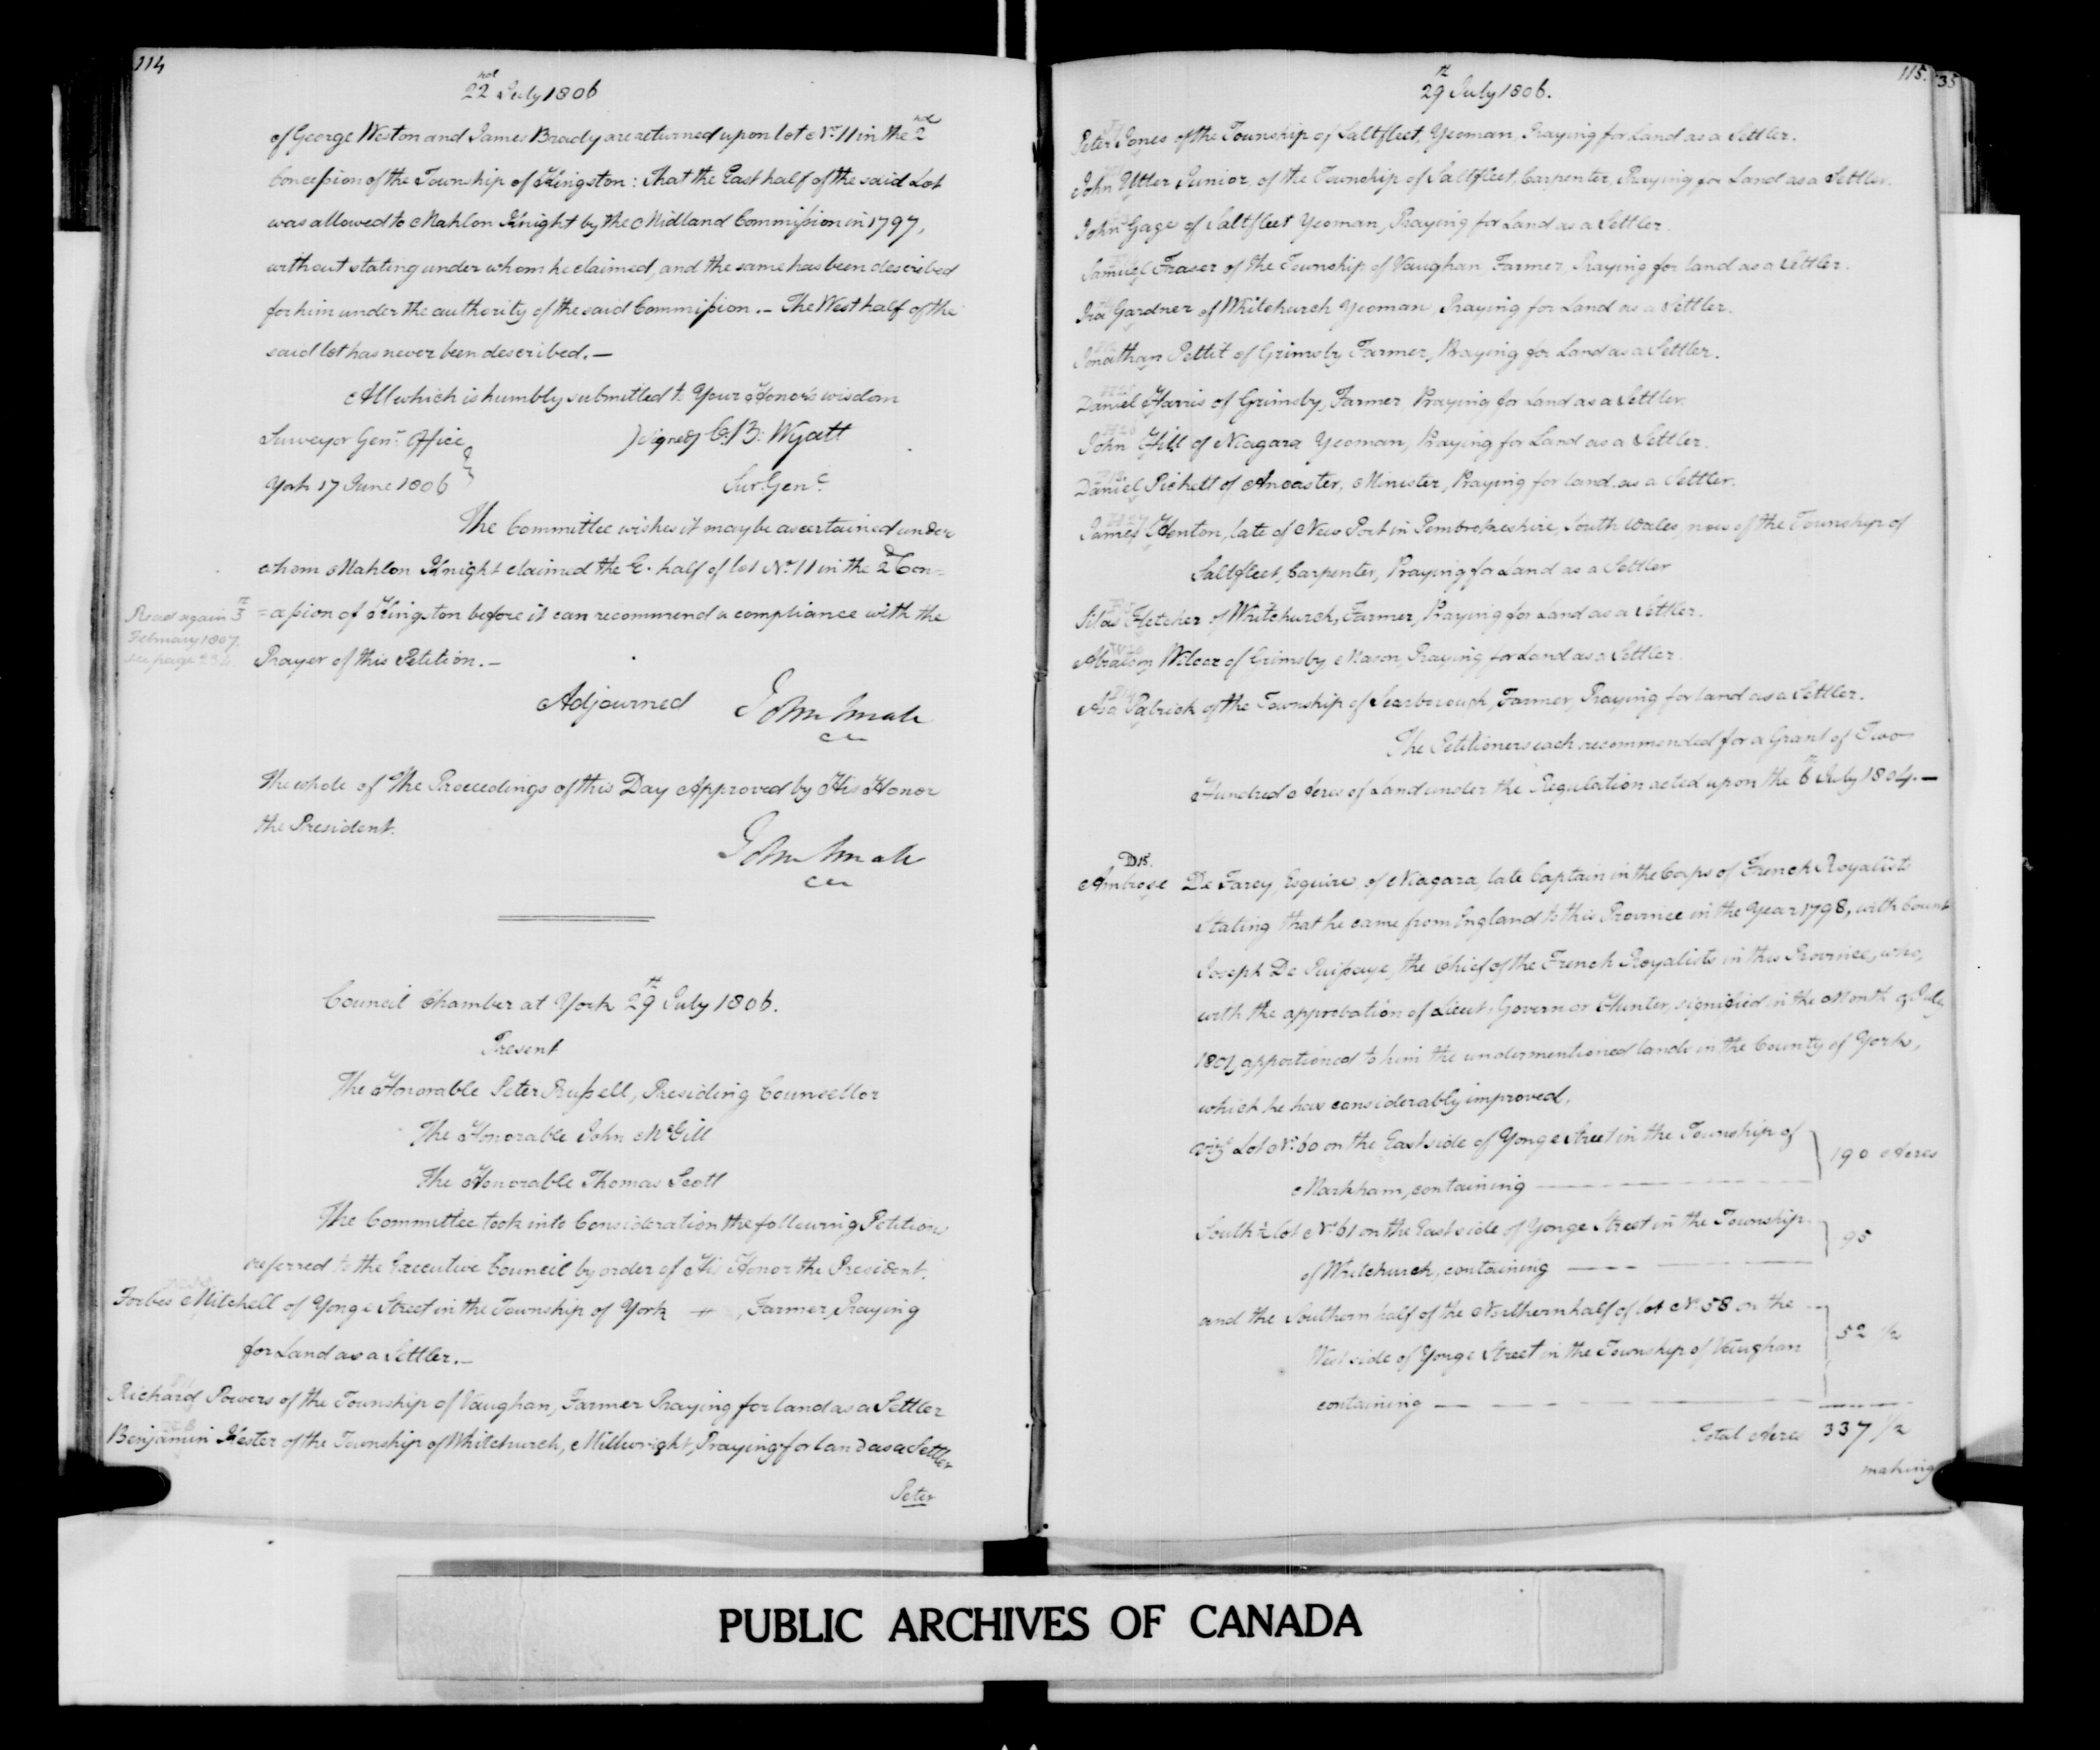 114
22nd July 1806
of George Weston and James Brady are returned upon lot No. 11 in the 2nd
Concession of the Township of Kingston: That the East half of the said Lot
was allowed to Mahlon Knight by the Midland Commission in 1797,
without stating under whom he claimed, and the same has been described
for him under the authority of the said Commission. - The West half of the
said lot has never been described. —
All which is humbly submitted to Your Honor's wisdom
Surveyor Genl. Office
(signed) C: B: Wyatt
York 17 June 1806
Sur: Genl.
The Committee wishes it may be ascertained under
whom Mahlon Knight claimed the E. half of lot No. 11 in the 2d Con=
Read again 3
February 1807.
see page
=cession of Kingston before it can recommend a compliance with the
Prayer of this Petition. -
Adjourned John Small
CC
The whole of the Proceedings of this Day Approved by His Honor
the President.
John Small
CC
Council Chamber at York 29th July 1806.
Present
The Honorable Peter Russell, Presiding Counsellor
The Honorable John McGill
The Honorable Thomas Scott
The Committee took into Consideration the following Petitions
referred to the Executive Council by order of His Honor the President.
Forbes Mitchell of Yonge Street in the Township of York, Farmer, Praying
for Land as a Settler. -
Richard Powers of the Township of Vaughan, Farmer Praying for land as a Settler
Benjamin Kester of the Township of Whitchurch, Millwright, Praying for land as a Settler
Peter
115.
35
29th July 1806.
Peter Jones of the Township of Saltfleet, Yeoman, Praying for Land as a Settler.
John Utter Junior, of the Township of Saltfleet, Carpenter, Praying for Land as a Settler.
John Gage of Saltfleet Yeoman, Praying for Land as a Settler.
Samuel Fraser of the Township of Vaughan, Farmer, Praying for land as a Settler.
Ira Gardner of Whitchurch Yeoman, Praying for Land as a Settler.
Jonathan Pettit of Grimsby Farmer, Praying for Land as a Settler.
Daniel Harris of Grimsby, Farmer, Praying for Land as a Settler.
John Hill of Niagara Yeoman, Praying for Land as a Settler.
Daniel Pickett of Ancaster, Minister, Praying for land as a Settler.
James Henton, late of New Port in Pembrokeshire, South Wales, now of the Township of
Saltfleet, Carpenter, Praying for Land as a Settler
Silas Fletcher of Whitchurch, Farmer, Praying for Land as a Settler.
Abraham Wilcox of Grimsby, Mason, Praying for Land as a Settler.
Asa Patrick of the Township of Scarborough, Farmer, Praying for land as a Settler.
The Petitioners each recommended for a Grant of Two
Hundred Acres of Land under the Regulation acted upon the 6th July 1804. —
D15.
Ambrose De Farcy, Esquire, of Niagara, late Captain in the Corps of French Royalists
Stating that he came from England to this Province in the Year 1798, with Count
Joseph De Puisaye, the Chief of the French Royalists in this Province, who,
with the approbation of Lieut. Governor Hunter, signified in the Month of July
1801, apportioned to him the undermentioned lands in the County of York,
which he has considerably improved,
vizt. Lot No. 60 on the East side of Yonge Street in the Township of
Markham, containing — 190 Acres
South ½ lot No. 61 on the East side of Yonge Street in the Township
of Whitchurch, containing — 95
and the Southern half of the Northern half of lot No. 58 on the
West side of Yonge Street in the Township of Vaughan 52 ½
containing —
Total Acres 337 ½
making
PUBLIC ARCHIVES OF CANADA